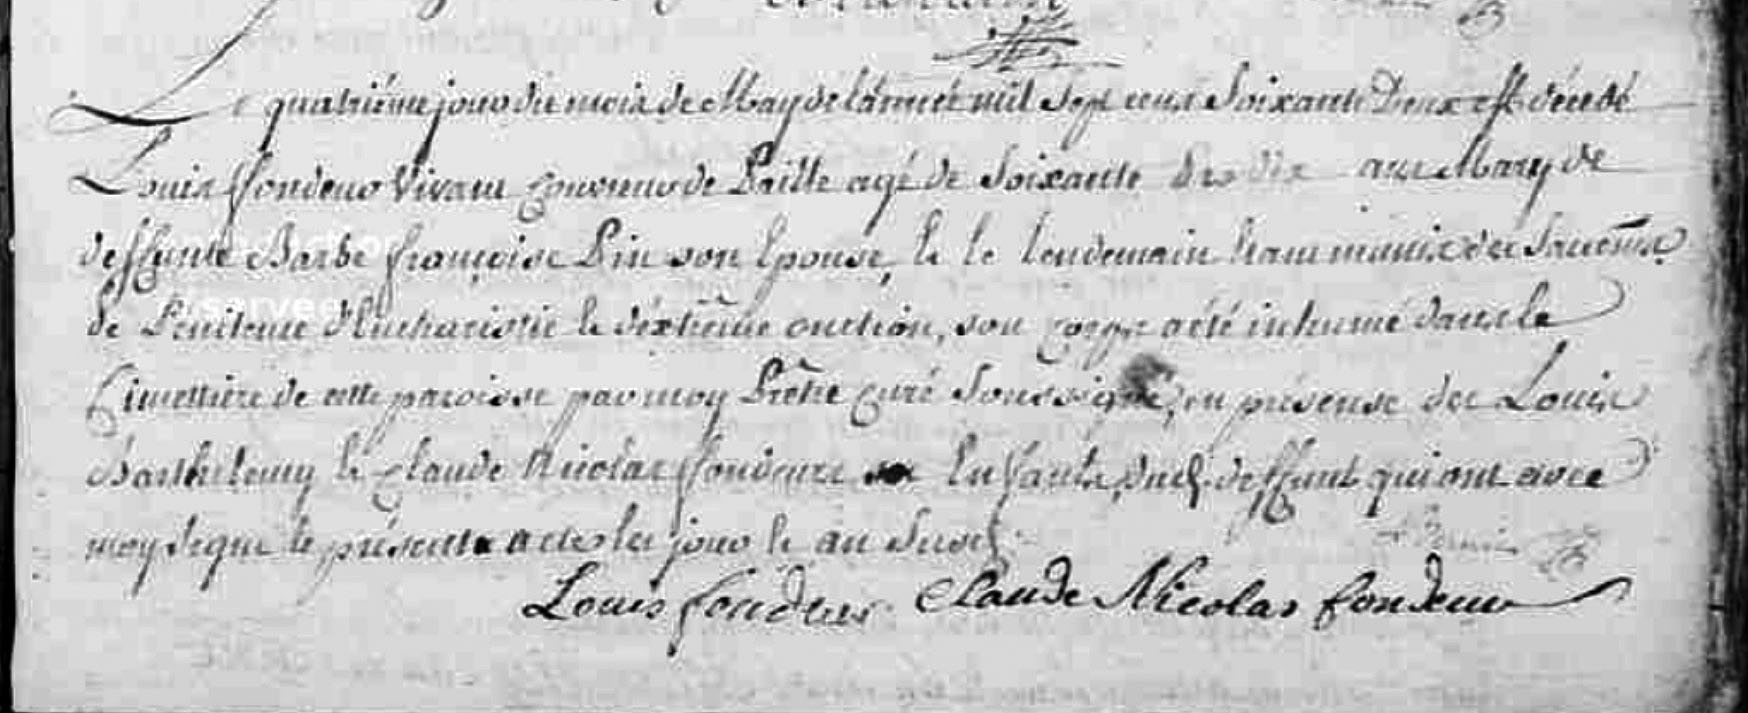 Le quatriéme jour du mois de May de l'année mil sept cens Soixante Deux est décédé
Louis ffondeur Vivant de Paille agé de Soixante dix ans Mary de
deffunte Barbe françoise Pin son Epouse, Et le lendemain étant munis des Sacrem.
de Penitence d'Eucharistie Et d'extrême onction, son corps a été inhumé dans le
Cimettiere de cette paroisse par moy Prêtre curé Soussigné, en présense des Louis
Barthelemy Et Claude Nicolas ffondeurs Enfants dud. deffunt qui ont avec
moy signé le présent acte les jour Et an Susd.
Louis fondeur Claude Nicolas fondeur